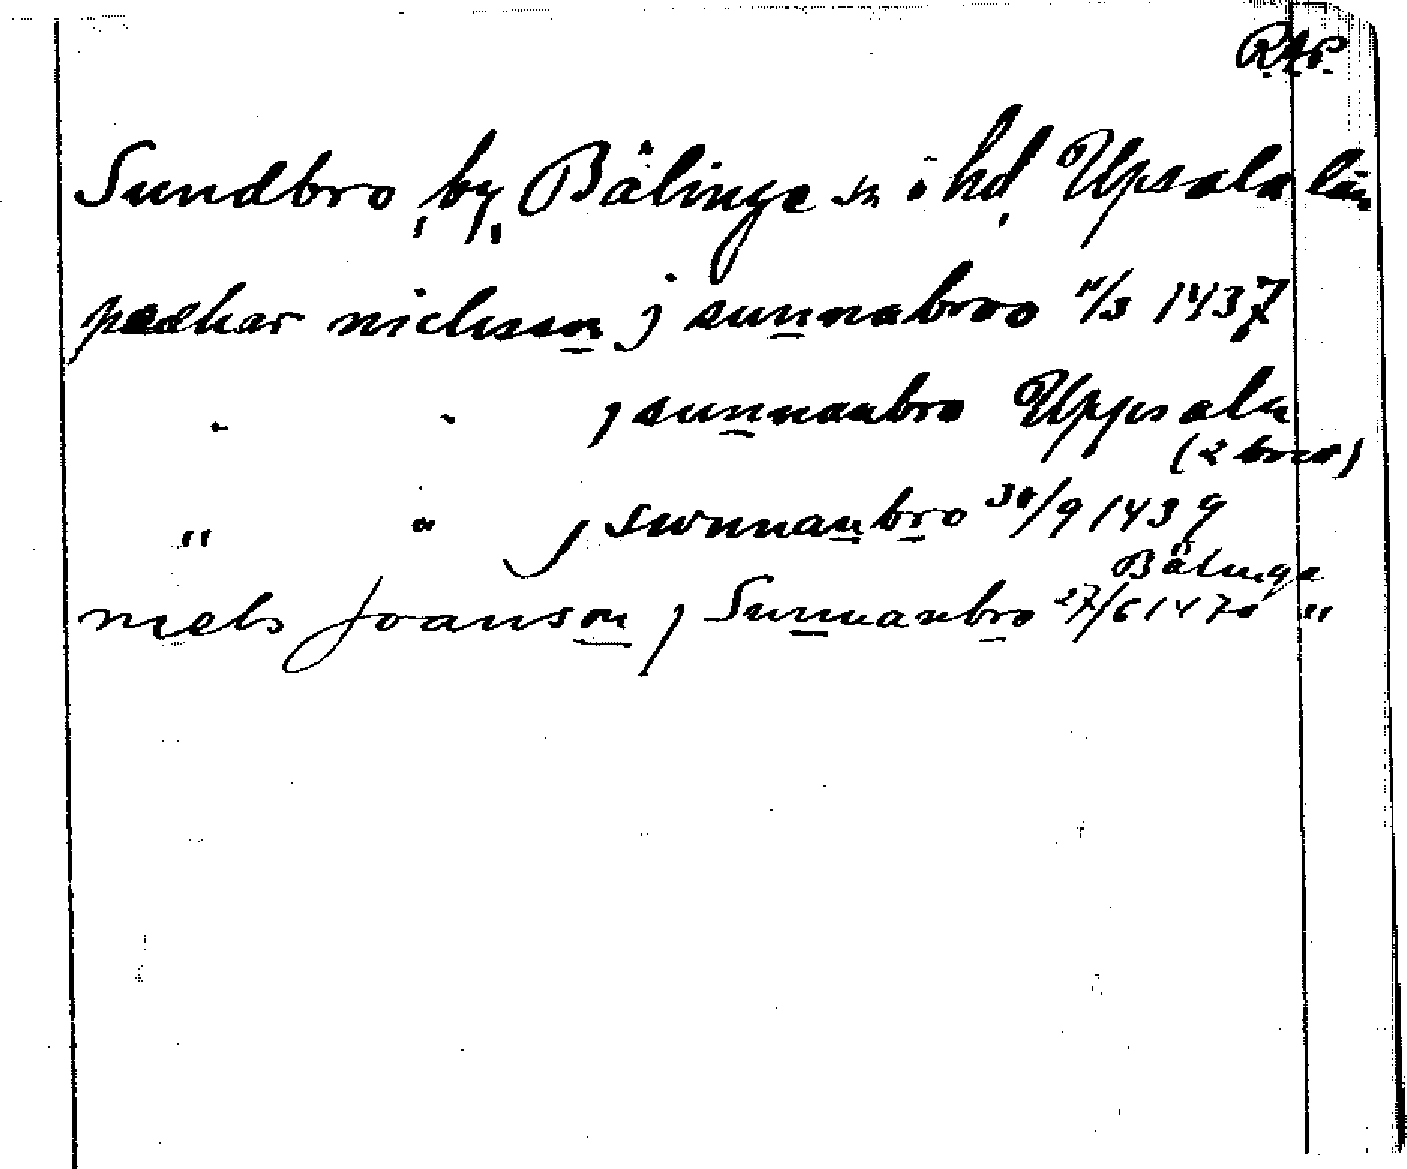 RAP.
Sundbro, by, Bälinge sn o hd, Upsala län
pædhar niclisson j sunnabroo 11/3 1437
" " j sunnanbro Uppsala
(2 brev)
" " j swnnanbro 30/9 1439
Bälinge
niels Joansson j Sunnanbro 27/6 1470 "